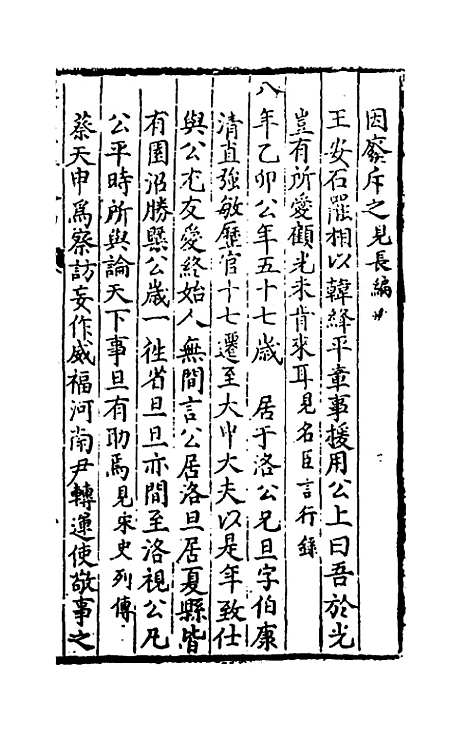 因廢斥之見長編
王安石罷相以韓絳平章事援用公上曰吾於光
豈有所愛顧光未肯來耳見名臣言行錄
八年乙卯公年五十七歲 居于洛公兄旦字伯康
清直強敏歷官十七遷至大中大夫以是年致仕
與公尤友愛終始人無間言公居洛旦居夏縣皆
有園沼勝槩公歲一徃省旦旦亦間至洛視公凡
公平時所與論天下事旦有助焉見宋史列傳
蔡天申爲察訪妄作威福河南尹轉運使敬事之